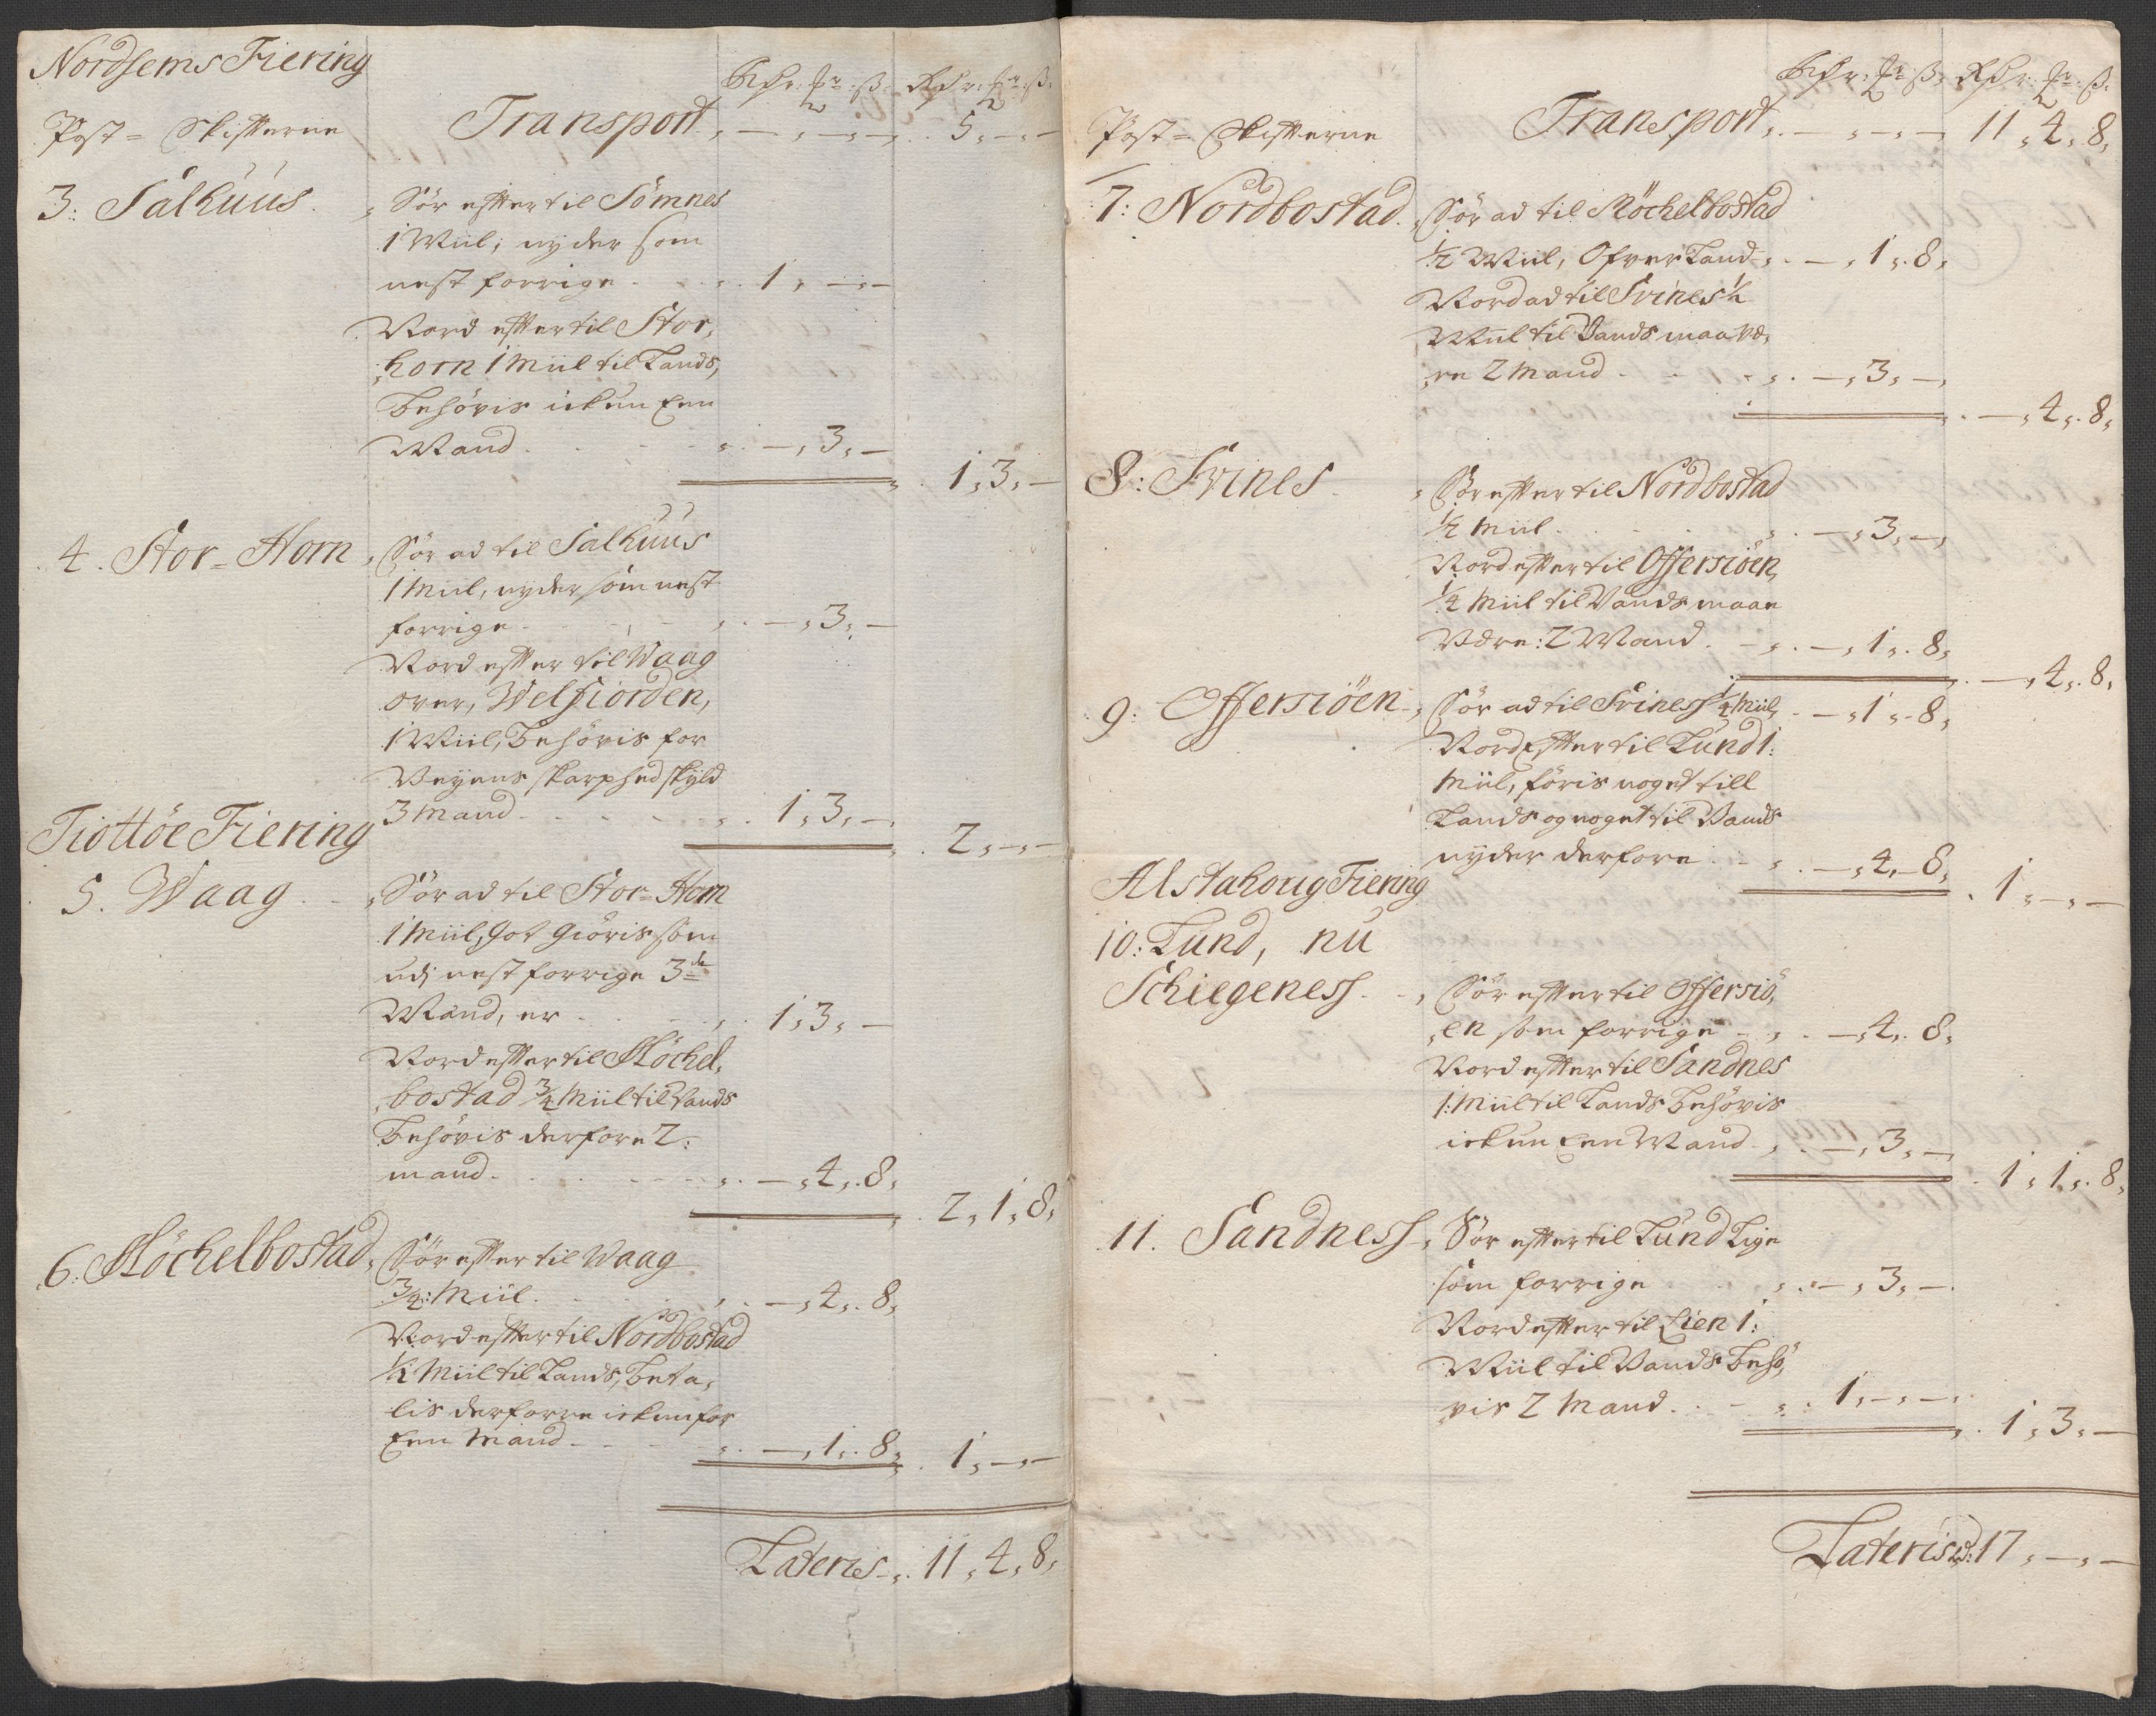 Nordsems Fiering
Rdr: ʒr: ß: Rdr: ʒr: ß:
Post= Skifterne Transport „ — „ — „ — „ 5 „ — „ —
3: Salhuus. „ Sör efter til Sömnes
1 Miil; nyder som
nest forrige. „ 1 „ — „ —
Nord efter til Stor„
„horn 1 Miil til Lands,
behövis ickun Een
Mand . . „ — „ 3 „ —
1 „ 3 „ —
4. Stor=Horn „ Sör ad til Salhuus
1 Miil, nyder som nest
forrige . . „ — „ 3 „ —
Nord efter til Waag
over, Welfiorden,
1 Miil, behövis for
Veyens skarphed skyld
3 Mand . . „ 1 „ 3 „ —
2 „ — „ —
Tiottöe Fiering
5. Waag . . „ Sör ad til Stor=Horn
1 Miil, Hot giöris som
udj nest forrige 3de
Mand, er . . „ 1 „ 3 „ —
Nord efter til Höchel„
„bostad 3/4 Miil til Vands
behövis derfore 2:
mand . . „ — „ 4 „ 8 „
2 „ 1 „ 8 „
6: Höchelbostad „ Sör efter til Waag
3/4: Miil . . „ — „ 4 „ 8 „
Nord efter til Nordbostad
1/2 Miil til Lands, beta„
lis derforre ickun for
Een Mand . . „ — „ 1 „ 8 „ 1 „ — „ —
Lateris „ 11 „ 4 „ 8 „
Rdr: ʒr: ß: Rdr: ʒr: ß:
Post= Skifterne Transport „ — „ — „ — 11 „ 4 „ 8 „
7: Nordbostad „ Sör ad til Höchelbostad
1/2 Miil, Ofver Land „ — „ 1 „ 8 „
Nord ad til Svines 1/2
Miil til Vands maa væ„
„re 2 Mand . . „ — „ 3 „ — „
— „ 4 „ 8 „
8: Svines . „ Sör efter til Nordbostad
1/2 Miil . . „ — „ 3 „ — „
Nord efter til Offersiöen,
1/4 Miil til Vands maae
Være: 2 Mand . „ — „ 1 „ 8 „
— „ 4 „ 8 „
9: Offersiöen „ Sör ad til Sviness 1/4 Miil, — „ 1 „ 8 „
Nord Efter til Lund 1:
Miil, föris noget till
Lands og noget til Vands
nyder derfore . „ — „ 4 „ 8 „
1 „ — „ —
Alstahoug Fiering
10: Lund, nu
Schiegeness . „ Sör efter til Offersiö„
„en som forrige „ — „ 4 „ 8 „
Nord efter til Sandnes
1: Miil til Lands behövis
ickun Een Mand „ — „ 3 „ —
1 „ 1 „ 8 „
11. Sandness „ Sör efter til Lund Lige
som forrige . „ — „ 3 „ —
Nord efter til Eien 1:
Miil til Vands behö„
vis 2 Mand . . „ 1 „ — „ —
1 „ 3 „ —
Lateris rd: 17 „ — „ —